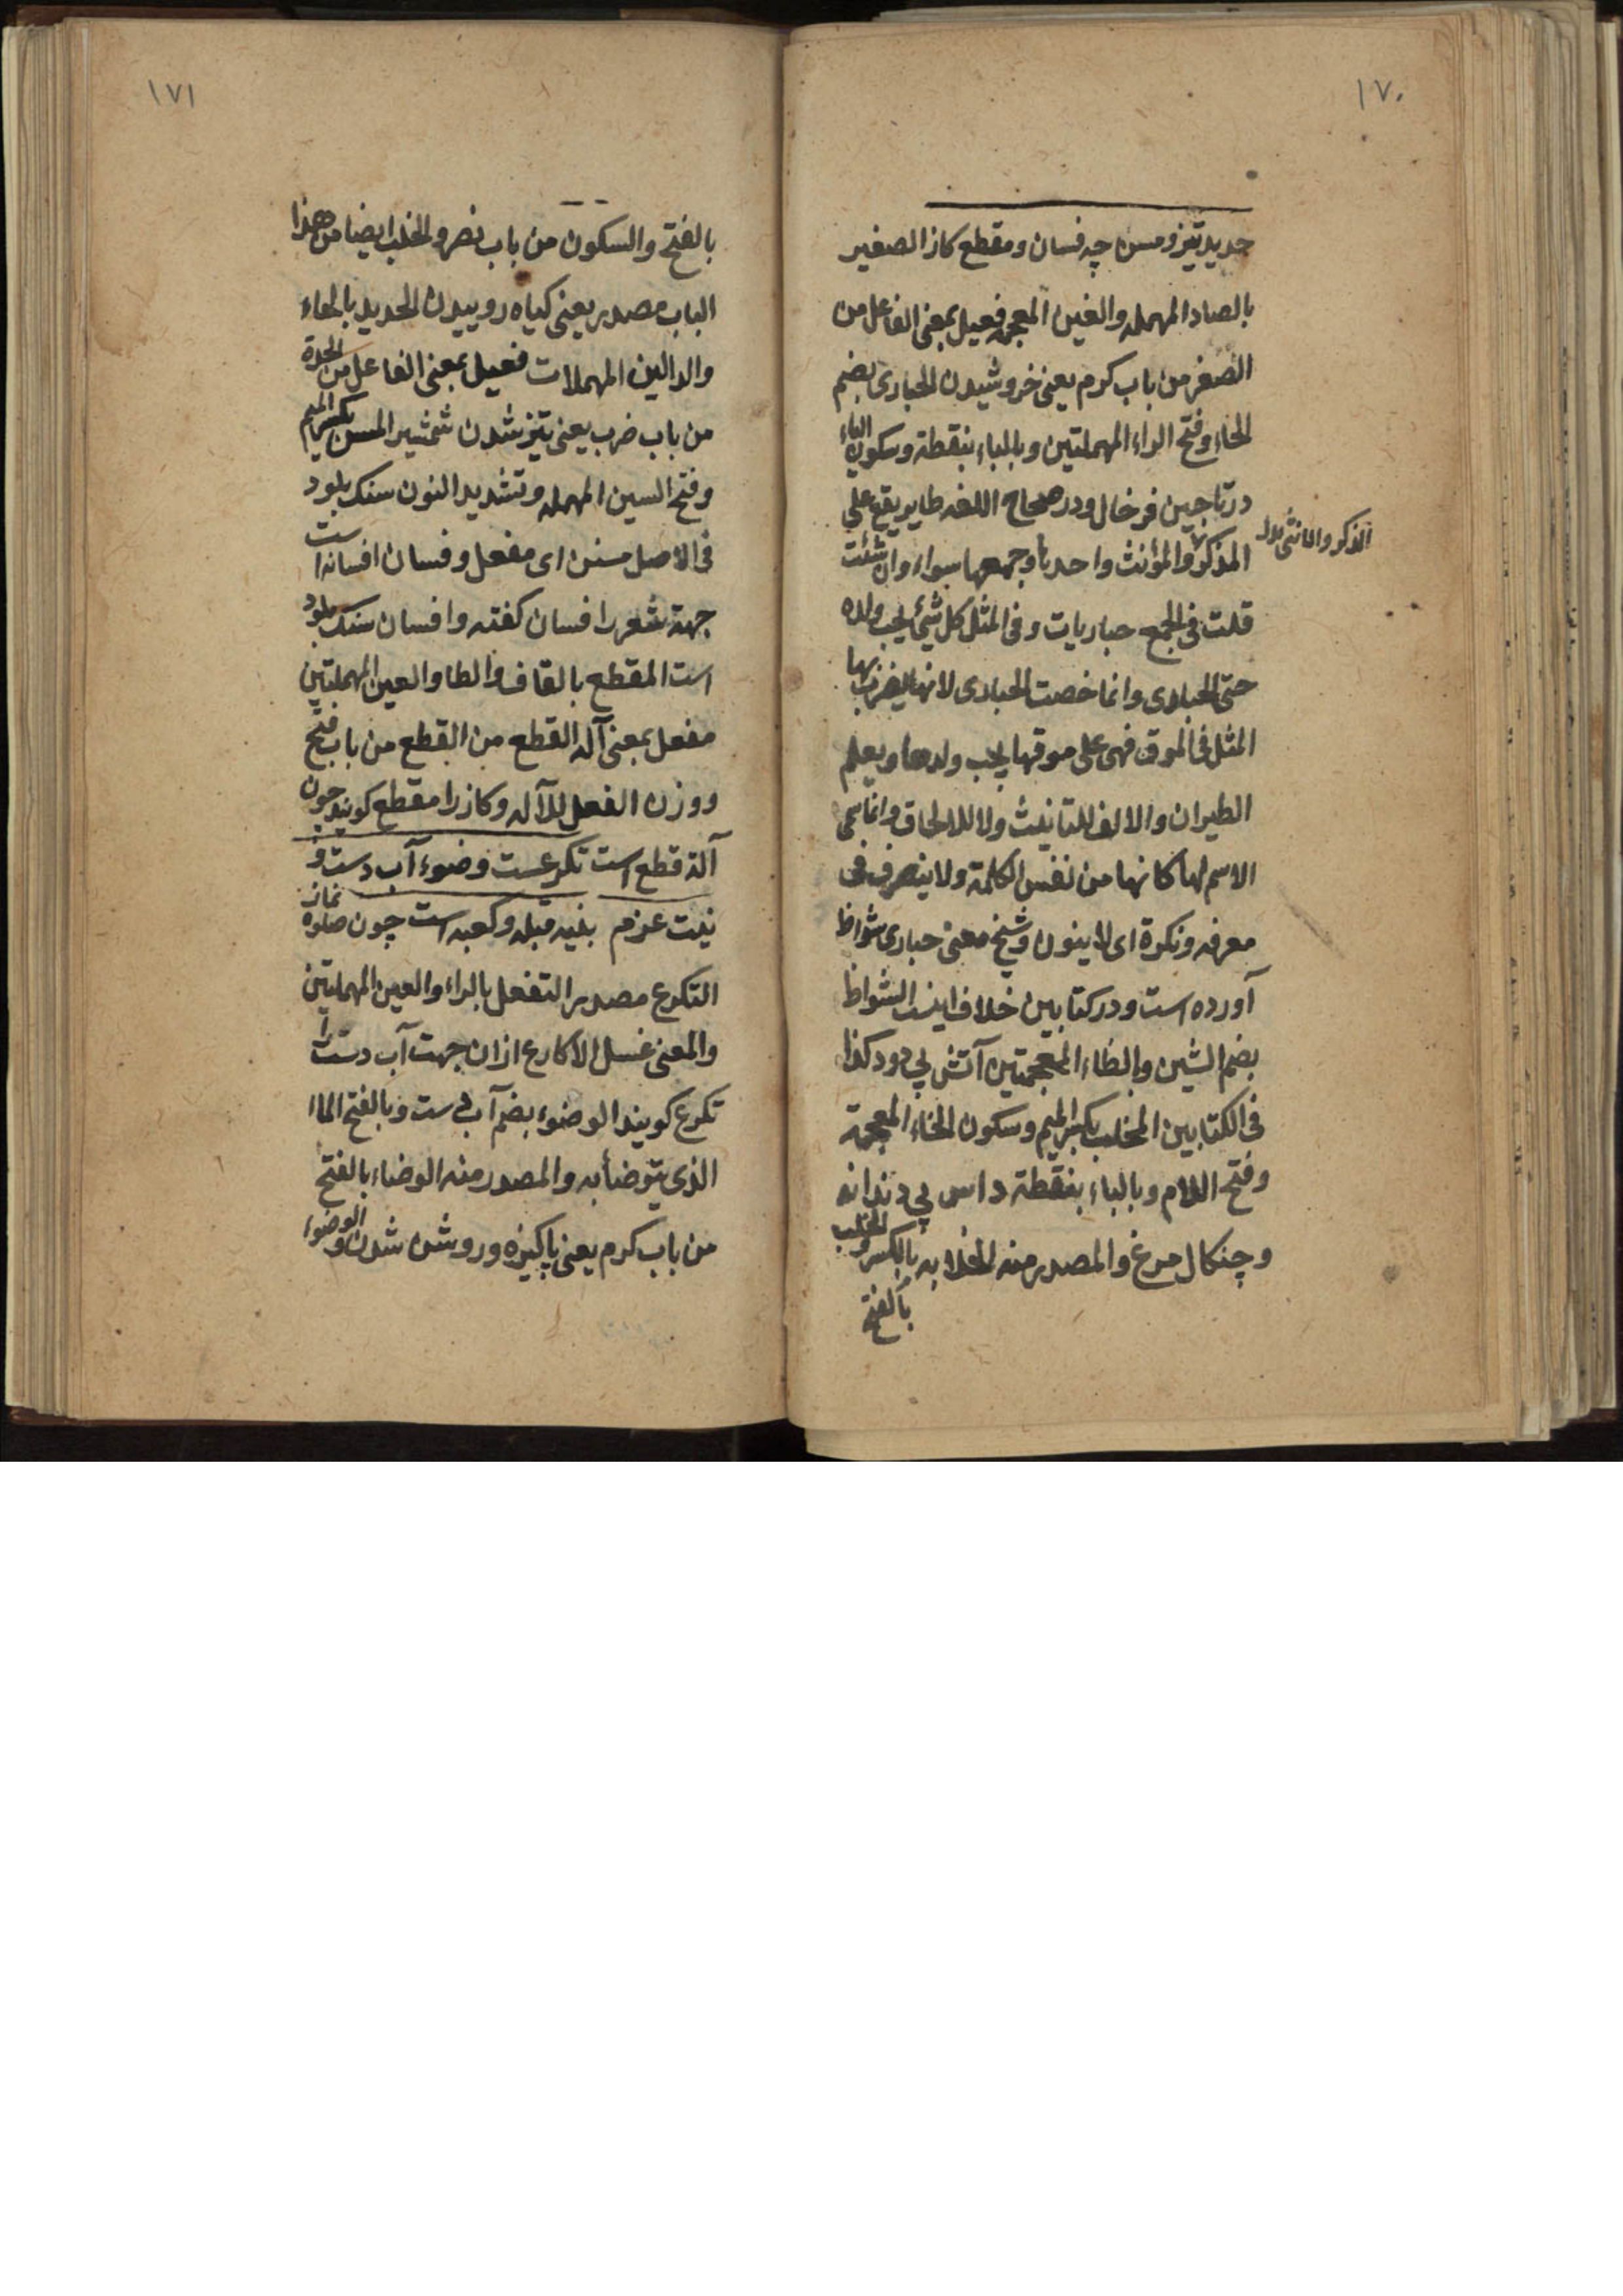 ١٧٠
حدید تیز و مسن چه فسان و مقطع کاز الصغیر
بالصاد المهمله والغین المعجمه فعیل بمعنی الفاعل من
الصغر من باب کرم یعنی خروشیدن الحباری بضم
الحاء وفتح الراء المهملتین وبالباء بنقطة وسکون الیاء
در تاجین فرخال ودر صحاح اللغه طایر یقع علی
الذکر والانثی بدل
المذکر والمؤنث واحدها وجمعها سواء وان شئت
قلت فی الجمع حباریات وفی المثل کل شئ یحب ولده
حتی الحباری وانما خصت الحباری لانها یضرب بها
المثل فی الموق فهی علی موقها یحب ولدها ویعلم
الطیران والالف للتانیث ولا للالحاق وانما بنی
الاسم لها کانها من نفس الکلمة ولا ینصرف فی
معرفه ونکرة ای لا ینون وشیخ معنی حباری شواظ
آورده است ودر کتابین خلاف اینست الشواظ
بضم الشین والظاء المعجمتین آتش بی دود کذا
فی الکتابین المخلب بکسر المیم وسکون الخاء المعجمة
وفتح اللام وبالباء بنقطة داس بی دندانه
وچنکال مرغ والمصدر منه الخلابه بالکسر والخلب
بالفتح
١٧١
بالفتح والسکون من باب نصر والخلب ایضا من هذا
الباب مصدر یعنی کیاه روییدن الحدید بالحاء
والدالین المهملات فعیل بمعنی الفاعل من الحدة
من باب ضرب یعنی تیز شدن شمشیر المسن بکسر المیم
وفتح السین المهمله وتشدید النون سنک بلود
فی الاصل مسنن ای مفعل وفسان افسانه است
جهة شعر را فسان کفته وافسان سنک بلود
است المقطع بالقاف والطا والعین المهملتین
مفعل بمعنی آله القطع من القطع من باب فتح
ووزن الفعل للآله وکاز را مقطع کویند چون
آلة قطع است تکرعست وضوء آب دست و
نیت عزم بنیه قبله وکعبه است چون صلوه نماز
التکرع مصدر التفعل بالراء والعین المهملتین
والمعنی غسل الاکارع ازان جهت آب دست را
تکرع کویند الوضوء بضم آب دست وبالفتح الماا
الذی یتوضأ به والمصدر منه الوضاء بالفتح
من باب کرم یعنی پاکیزه وروشن شدن والوضوء